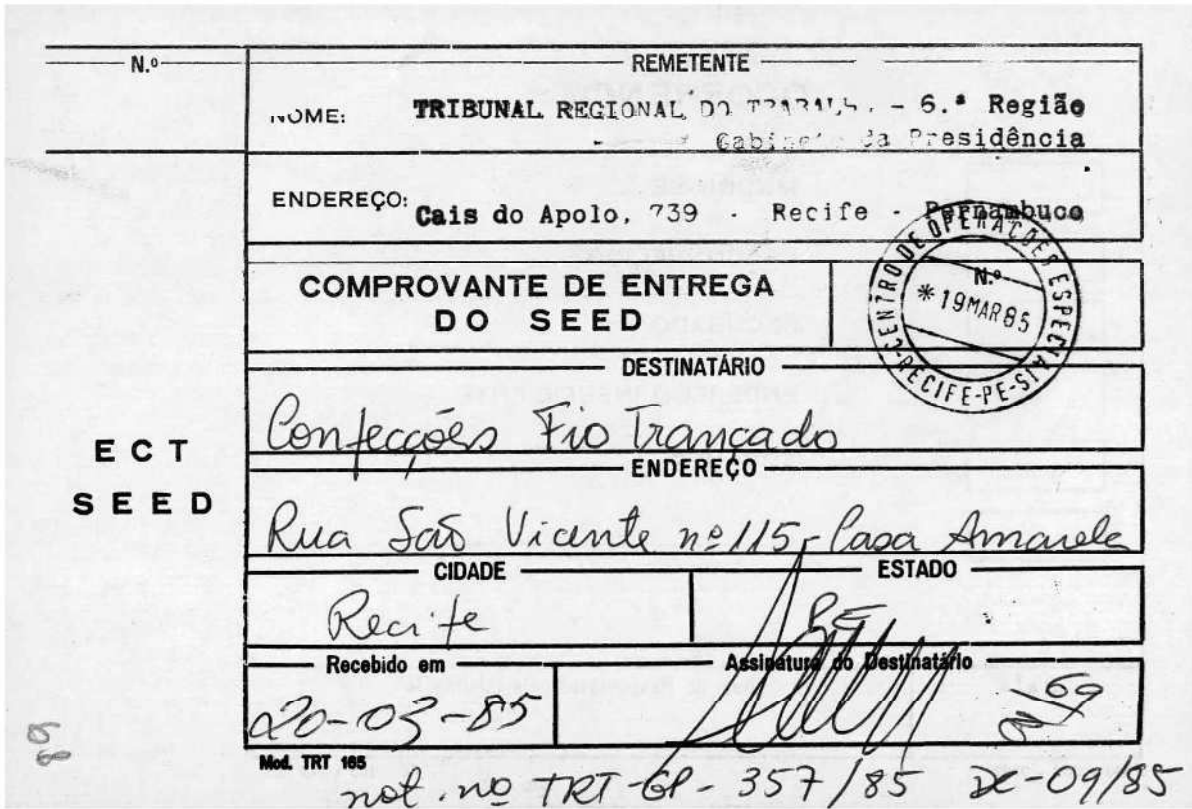 N.º
REMETENTE
NOME: TRIBUNAL REGIONAL DO TRABALHO - 6.ª Região
Gabinete da Presidência
ENDEREÇO: Cais do Apolo, 739 - Recife - Pernambuco
COMPROVANTE DE ENTREGA
DO SEED
N.º
CENTRO DE OPERAÇÕES ESPECIAIS
* 19MAR85
RECIFE-PE
DESTINATÁRIO
Confecções Fio Trançado
ECT
SEED
ENDEREÇO
Rua São Vicente nº 115 - Casa Amarela
CIDADE
ESTADO
Recife
PE
Recebido em
Assinatura do Destinatário
20-03-85
Mod. TRT 165
not. nº TRT-GP-357/85 DC-09/85